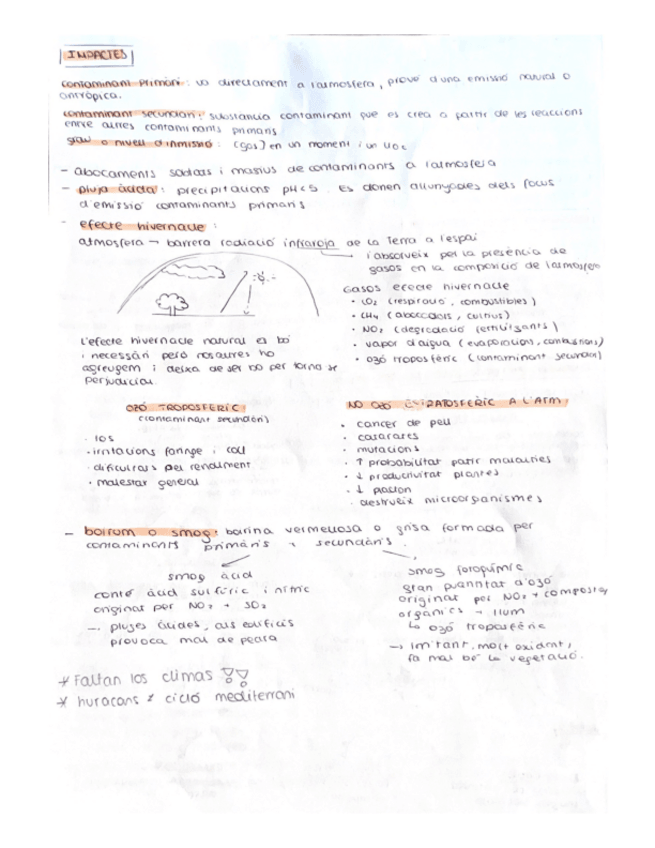 IMPACTES
contaminant primari: va directament a l'atmosfera, prové d'una emissió natural o
antròpica.
contaminant secundari: substància contaminant que es crea a partir de les reaccions
entre altres contaminants primaris
grau o nivell d'inmissió: [gas] en un moment i un lloc
- abocaments sobtats i masius de contaminants a l'atmosfera
- pluja àcida: precipitacions pH<5. Es donen allunyades dels focus
d'emissió contaminants primaris
- efecte hivernacle:
atmosfera → barrera radiació infraroja de la Terra a l'espai
l'absorveix per la presència de
gasos en la composició de l'atmosfera
Gasos efecte hivernacle
· CO2 (respiració, combustibles)
· CH4 (abocadors, cultius)
· NO2 (degradació fertilitzants)
· vapor d'aigua (evaporacions, combustions)
· ozó troposfèric (contaminant secundari)
L'efecte hivernacle natural és bo
i necessàri però nosaltres ho
agreugem i deixa de ser bo per torna-se
perjudicial.
OZÓ TROPOSFÈRIC:
(contaminant secundàri)
· tos
· irritacions faringe i coll
· dificultats pel rendiment
· malestar general
NO OZÓ ESTRATOSFÈRIC A L'ATM:
· càncer de pell
· catarates
· mutacions
· ↑ probabilitat patir malalties
· ↓ productivitat plantes
· ↓ plàcton
· destrueix microorganismes
- boirum o smog: boirina vermellosa o grisa formada per
contaminants primàris i secundàris.
smog àcid
conté àcid sulfúric i nítric
originat per NO2 + SO2
→ plujes àcides, als edificis
provoca mal de pedra
smog fotoquímic
gran quantitat d'ozó
originat per NO2 + compostos
orgànics + llum
↳ ozó troposfèric
→ irritant, molt oxidant,
fa mal bé la vegetació.
* Faltan los climas !!
* huracans i cicló mediterrani